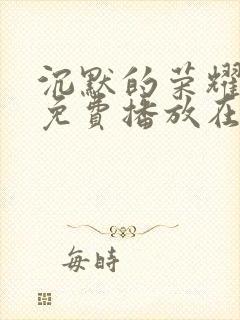 沉默的荣耀
免費播放在
每時